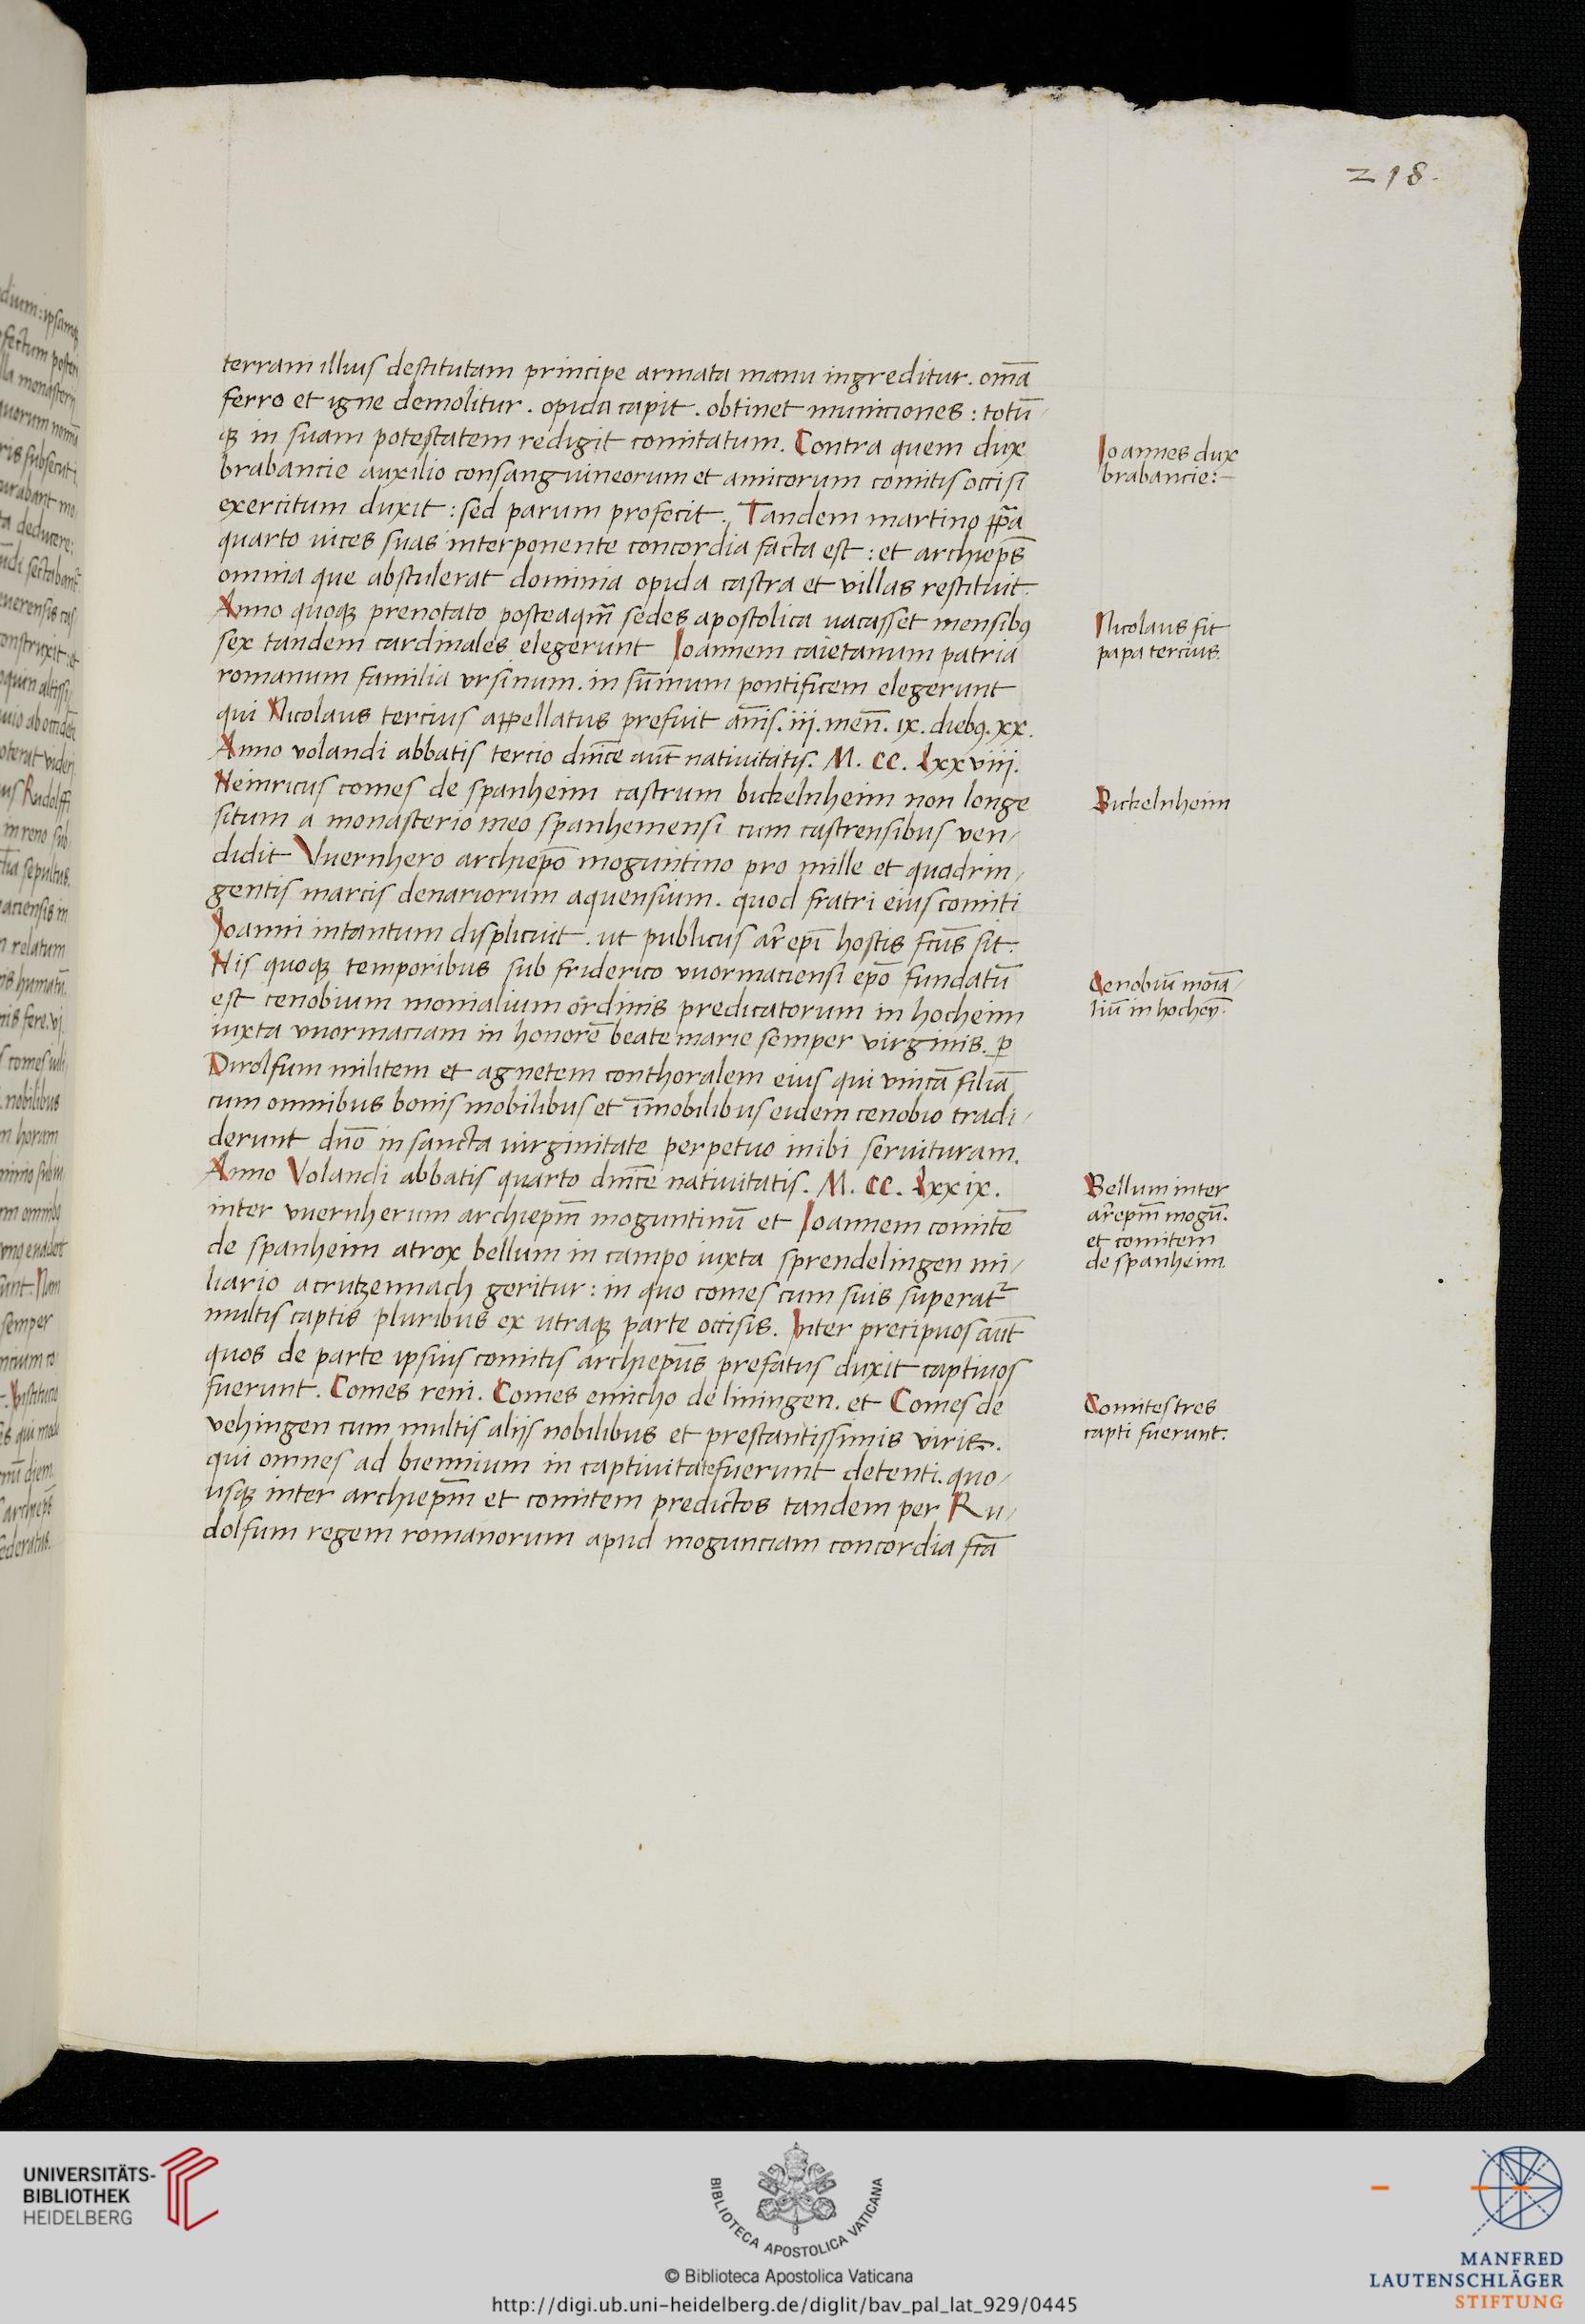 218.
terram illius destitutam principe armata manu ingreditur. om̄a
ferro et igne demolitur. opida capit. obtinet municiones: totū
qꝫ in suam potestatem redigit comitatum. Contra quem dux
brabancie auxilio consanguineorum et amicorum comitis occisi
exercitum duxit: sed parum profecit. Tandem martino pp̄a
quarto uices suas interponente concordia facta est: et archiep̄s
omnia que abstulerat dominia opida castra et villas restituit.
Anno quoqꝫ prenotato posteaqm̄ sedes apostolica uacasset mensibꝰ
sex tandem cardinales elegerunt Ioannem caietanum patria
romanum familia vrsinum. in sūmum pontificem elegerunt
qui Nicolaus tercius appellatus prefuit an̄is. iij. men̄. ix. diebꝰ. xx.
Anno volandi abbatis tercio dn̄ice aūt natiuitatis. M. CC. lxxviij.
Heinricus comes de spanheim castrum bickelnheim non longe
situm a monasterio meo spanhemensi cum castrensibus ven/
didit Vuernhero archiepō moguntino pro mille et quadrin/
gentis marcis denariorum aquensium. quod fratri eius comiti
Ioanni intantum displicuit. ut publicus ar̄epī hostis fcūs sit.
His quoqꝫ temporibus sub friderico vuormaciensi epō fundatū
est cenobium monialium ordinis predicatorum in hocheim
iuxta vuormaciam in honorē beate marie semper virginis. ꝑ
Dirolfum militem et agnetem conthoralem eius qui vnicā filiā
cum omnibus bonis mobilibus et īmobilibus eidem cenobio tradi/
derunt dnō in sancta uirginitate perpetuo inibi seruituram.
Anno Volandi abbatis quarto dn̄ice natiuitatis. M. CC. lxxix.
inter vuernherum archiepm̄ moguntinū et Ioannem comitē
de spanheim atrox bellum in campo iuxta sprendelingen mi/
liario a crutzennach geritur: in quo comes cum suis superat᷑
multis captis pluribus ex utraqꝫ parte occisis. Inter precipuos aūt
quos de parte ipsius comitis archiepūs prefatus duxit captiuos
fuerunt. Comes reni. Comes emicho de liningen. et Comes de
vehingen cum multis alijs nobilibus et prestantissimis viris.
qui omnes ad biennium in captiuitate fuerunt detenti. quo/
usqꝫ inter archiepm̄ et comitem predictos tandem per Ru/
dolfum regem romanorum apud mogunciam concordia fcā
Ioannes dux
brabancie:-
Nicolaus fit
papa tercius.
Bickelnheim
Cenobiū moīa/
liū in hocheȳ.
Bellum inter
ar̄epm̄ mogū.
et comitem
de spanheim.
Comites tres
capti fuerunt.
UNIVERSITÄTS-
BIBLIOTHEK
HEIDELBERG
BIBLIOTECA APOSTOLICA VATICANA
© Biblioteca Apostolica Vaticana
http://digi.ub.uni-heidelberg.de/diglit/bav_pal_lat_929/0445
MANFRED
LAUTENSCHLÄGER
STIFTUNG